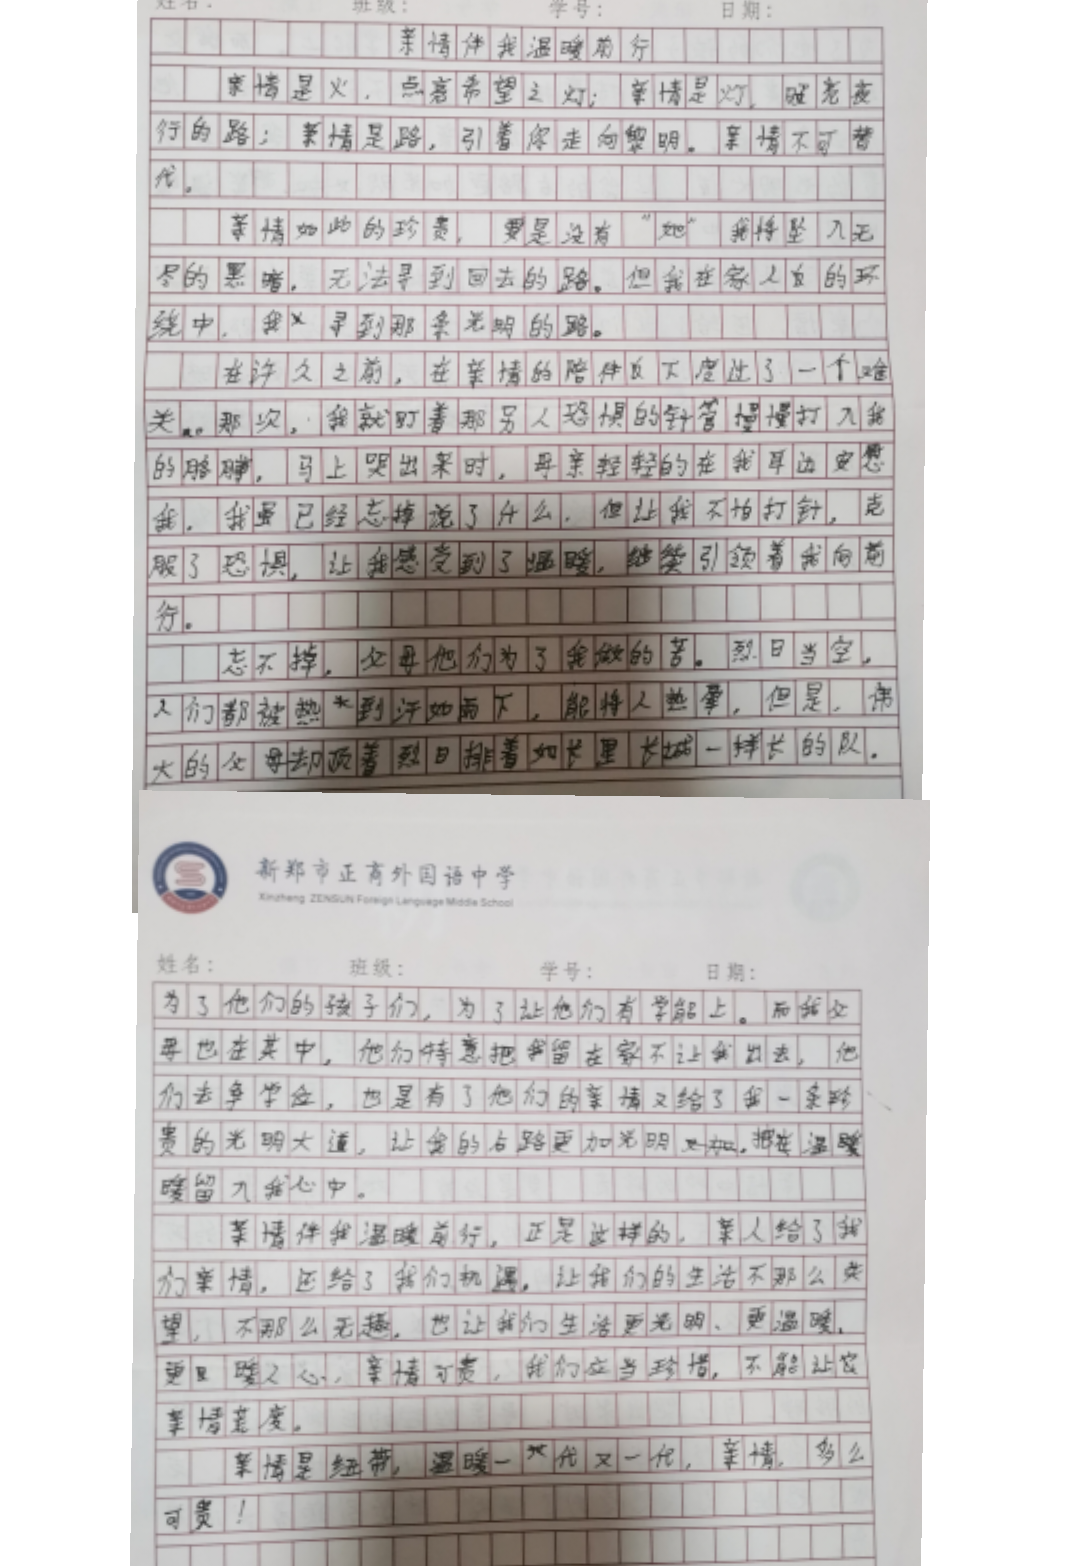 姓名: 班级: 学号: 日期:
亲情伴我温暖前行
亲情是火，点亮希望之灯；亲情是灯，照亮夜
行的路；亲情是路，引着你走向黎明。亲情不可替
代。
亲情如此的珍贵，要是没有“她”我将坠入无
尽的黑暗，无法寻到回去的路。但我在家人的环
绕中，我寻到那条光明的路。
在许久之前，在亲情的陪伴下度过了一个难
关。那次，我就盯着那另人恐惧的针管慢慢打入我
的胳膊，马上哭出来时，母亲轻轻的在我耳边安慰
我，我虽已经忘掉说了什么，但让我不怕打针，克
服了恐惧，让我感受到了温暖，继续引领着我向前
行。
忘不掉，父母他们为了我做的苦。烈日当空，
人们都被热到汗如雨下，能将人热晕，但是，伟
大的父母却顶着烈日排着如长里长城一样长的队。
新郑市正商外国语中学
Xinzheng ZENSUN Foreign Language Middle School
姓名: 班级: 学号: 日期:
为了他们的孩子们，为了让他们有学能上。而我父
母也在其中，他们特意把我留在家不让我出去，他
们去争学位，也是有了他们的亲情又给了我一条珍
贵的光明大道，让我的路更加光明，把温暖
暖留入我心中。
亲情伴我温暖前行，正是这样的，亲人给了我
们亲情，还给了我们机遇，让我们的生活不那么失
望，不那么无趣，也让我们生活更光明、更温暖，
更暖人心，亲情可贵，我们应当珍惜，不能让
亲情变度。
亲情是纽带，温暖一代又一代，亲情，多么
可贵！